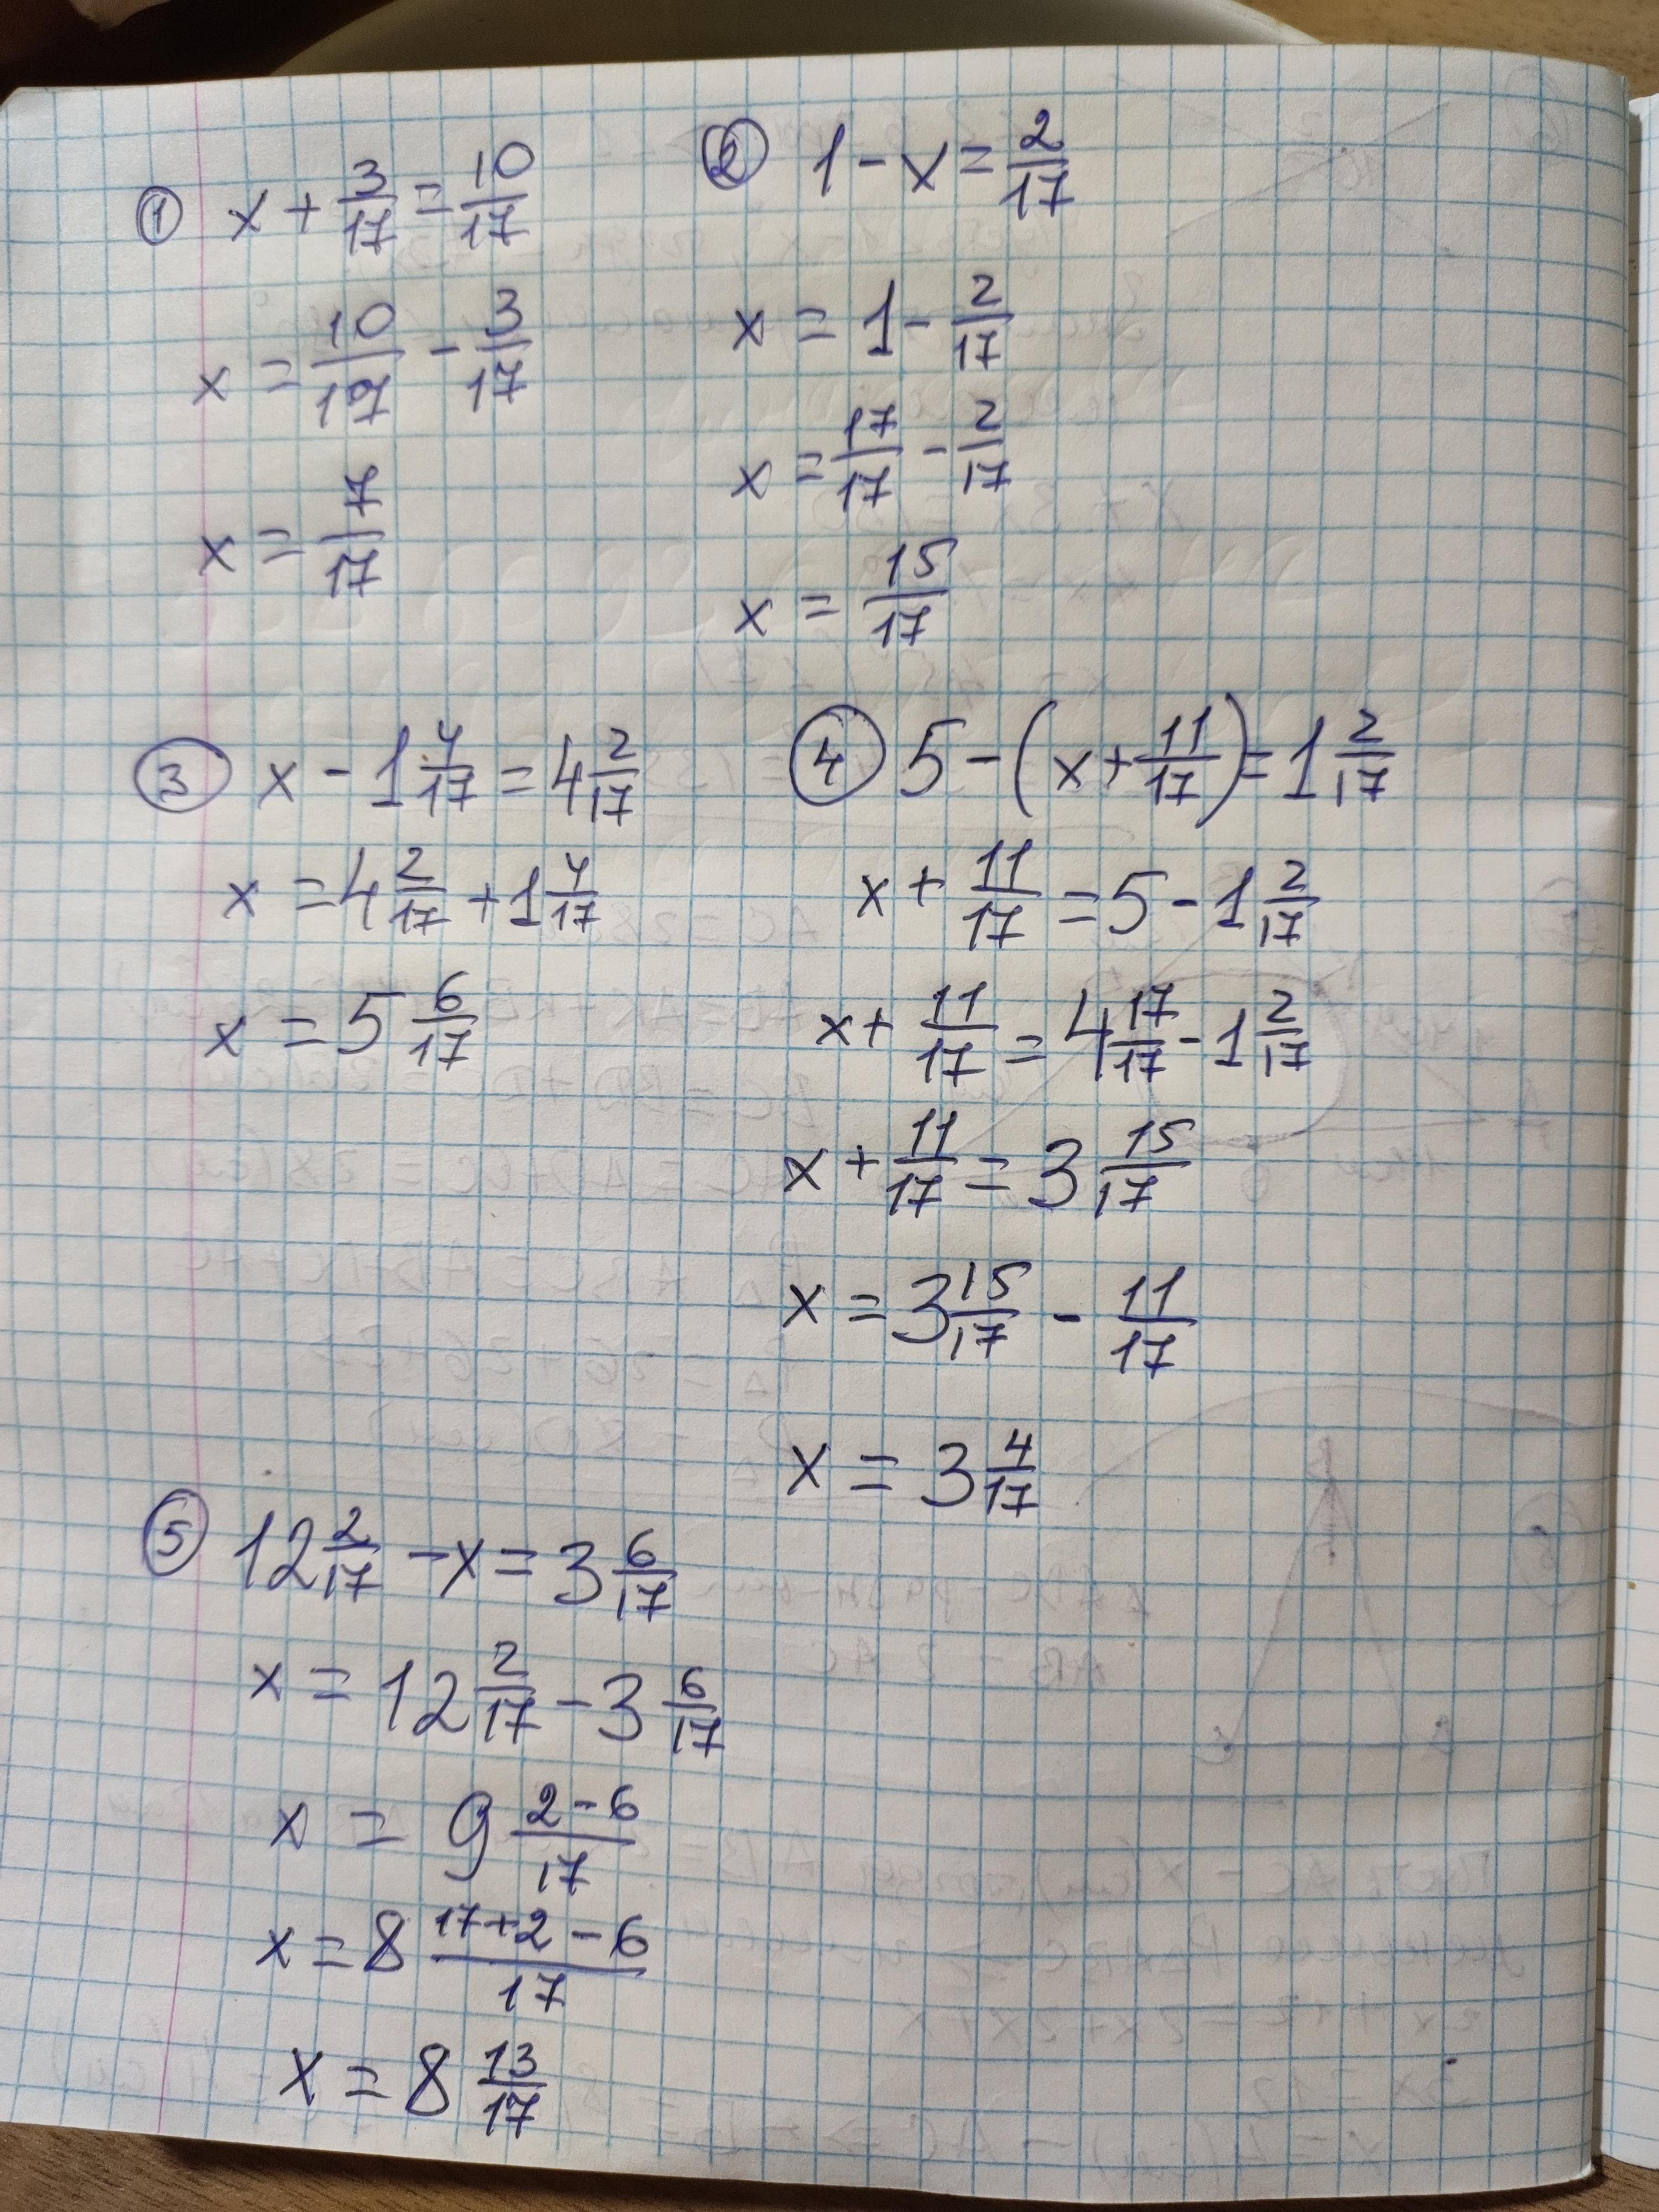 ① x + 3/17 = 10/17
x = 10/17 - 3/17
x = 7/17
② 1 - x = 2/17
x = 1 - 2/17
x = 17/17 - 2/17
x = 15/17
③ x - 1 4/17 = 4 2/17
x = 4 2/17 + 1 4/17
x = 5 6/17
④ 5 - (x + 11/17) = 1 2/17
x + 11/17 = 5 - 1 2/17
x + 11/17 = 4 17/17 - 1 2/17
x + 11/17 = 3 15/17
x = 3 15/17 - 11/17
x = 3 4/17
⑤ 12 2/17 - x = 3 6/17
x = 12 2/17 - 3 6/17
x = 9 (2-6)/17
x = 8 (17+2-6)/17
x = 8 13/17